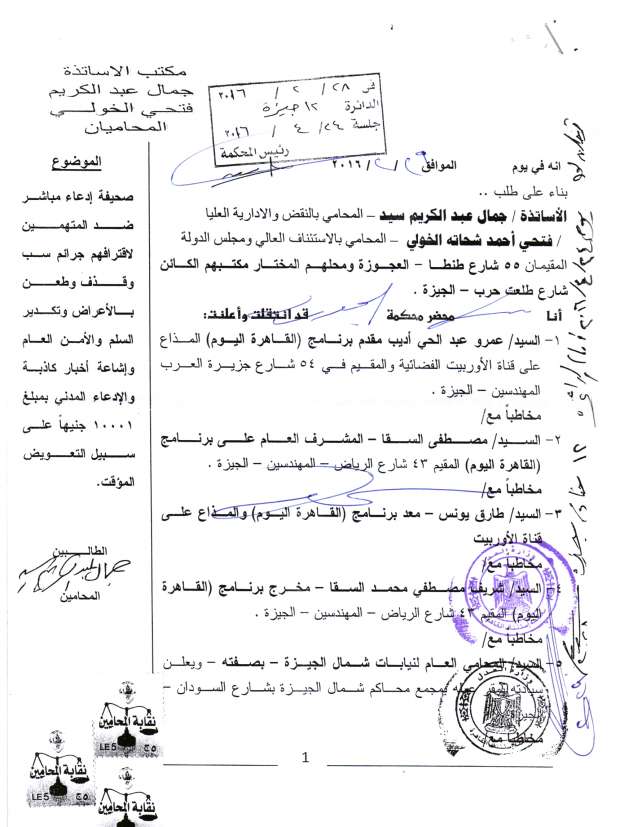 مكتب الاساتذة
جمال عبد الكريم
فتحي الخولي
المحاميان
في ٢٨/ ٢ / ٢٠١٦
الدائرة ١٢ جيزة
جلسة ٢٤/ ٤ / ٢٠١٦
رئيس المحكمة
الموضوع
صحيفة إدعاء مباشر
ضد المتهمين
لاقترافهم جرائم سب
وقذف وطعن
بالأعراض وتكدير
السلم والأمن العام
وإشاعة أخبار كاذبة
والإدعاء المدني بمبلغ
١٠٠٠١ جنيهاً على
سبيل التعويض
المؤقت.
الطالبين
المحامين
انه في يوم الموافق / / ٢٠١٦
بناء على طلب ..
الأساتذة / جمال عبد الكريم سيد – المحامي بالنقض والادارية العليا
/ فتحي أحمد شحاته الخولي – المحامي بالاستئناف العالي ومجلس الدولة
المقيمان ٥٥ شارع طنطا – العجوزة ومحلهم المختار مكتبهم الكائن
شارع طلعت حرب – الجيزة .
أنا محضر محكمة قد انتقلت وأعلنت:
١- السيد/ عمرو عبد الحي أديب مقدم برنامج (القاهرة اليوم) المذاع
على قناة الأوربيت الفضائية والمقيم في ٥٤ شارع جزيرة العرب
المهندسين – الجيزة .
مخاطباً مع/
٢- السيد/ مصطفى السقا – المشرف العام على برنامج
(القاهرة اليوم) المقيم ٤٣ شارع الرياض – المهندسين – الجيزة .
مخاطباً مع/
٣- السيد/ طارق يونس – معد برنامج (القاهرة اليوم) والمذاع على
قناة الأوربيت
مخاطباً مع/
٤- السيد/ شريف مصطفي محمد السقا – مخرج برنامج (القاهرة
اليوم) المقيم ٤٣ شارع الرياض – المهندسين – الجيزة .
مخاطباً مع/
٥- السيد/ المحامي العام لنيابات شمال الجيزة – بصفته – ويعلن
سيادته بمجمع محاكم شمال الجيزة بشارع السودان –
الجيزة
مخاطباً مع/
وزارة العدل
وزارة العدل
نقابة المحامين
LE5 ج٥
نقابة المحامين
LE5 ج٥
نقابة المحامين
1